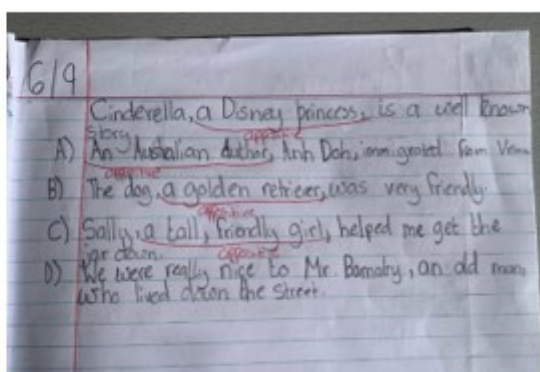 6/9
Cinderella, a Disney princess, is a well known
story
appositive
A) An Australian author, Anh Doh, immigrated from
appositive
B) The dog, a golden retriever, was very friendly.
appositive
C) Sally, a tall, friendly girl, helped me get the
jar down.
appositive
D) We were really nice to Mr. Barnaby, an old man,
who lived down the street.